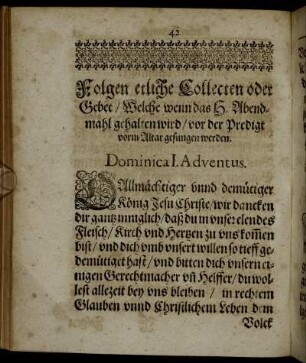 42
Folgen etliche Collecten oder
Gebet / Welche wenn das H. Abend-
mahl gehalten wird / vor der Predigt
vorm Altar gesungen werden.
Dominica I. Adventus.
O Allmächtiger vnnd demütiger
König Jesu Christe, wir dancken
dir gantz inniglich / daß du in vnser elendes
Fleisch / Kirch vnd Hertzen zu vns kom̃en
bist / vnd dich vmb vnsert willen so tieff ge-
demütiget hast / vnd bitten dich vnsern ei-
nigen Gerechtmacher vñ Helffer / du wol-
lest allezeit bey vns bleiben / in rechtem
Glauben vnnd Christlichem Leben dem
Volck